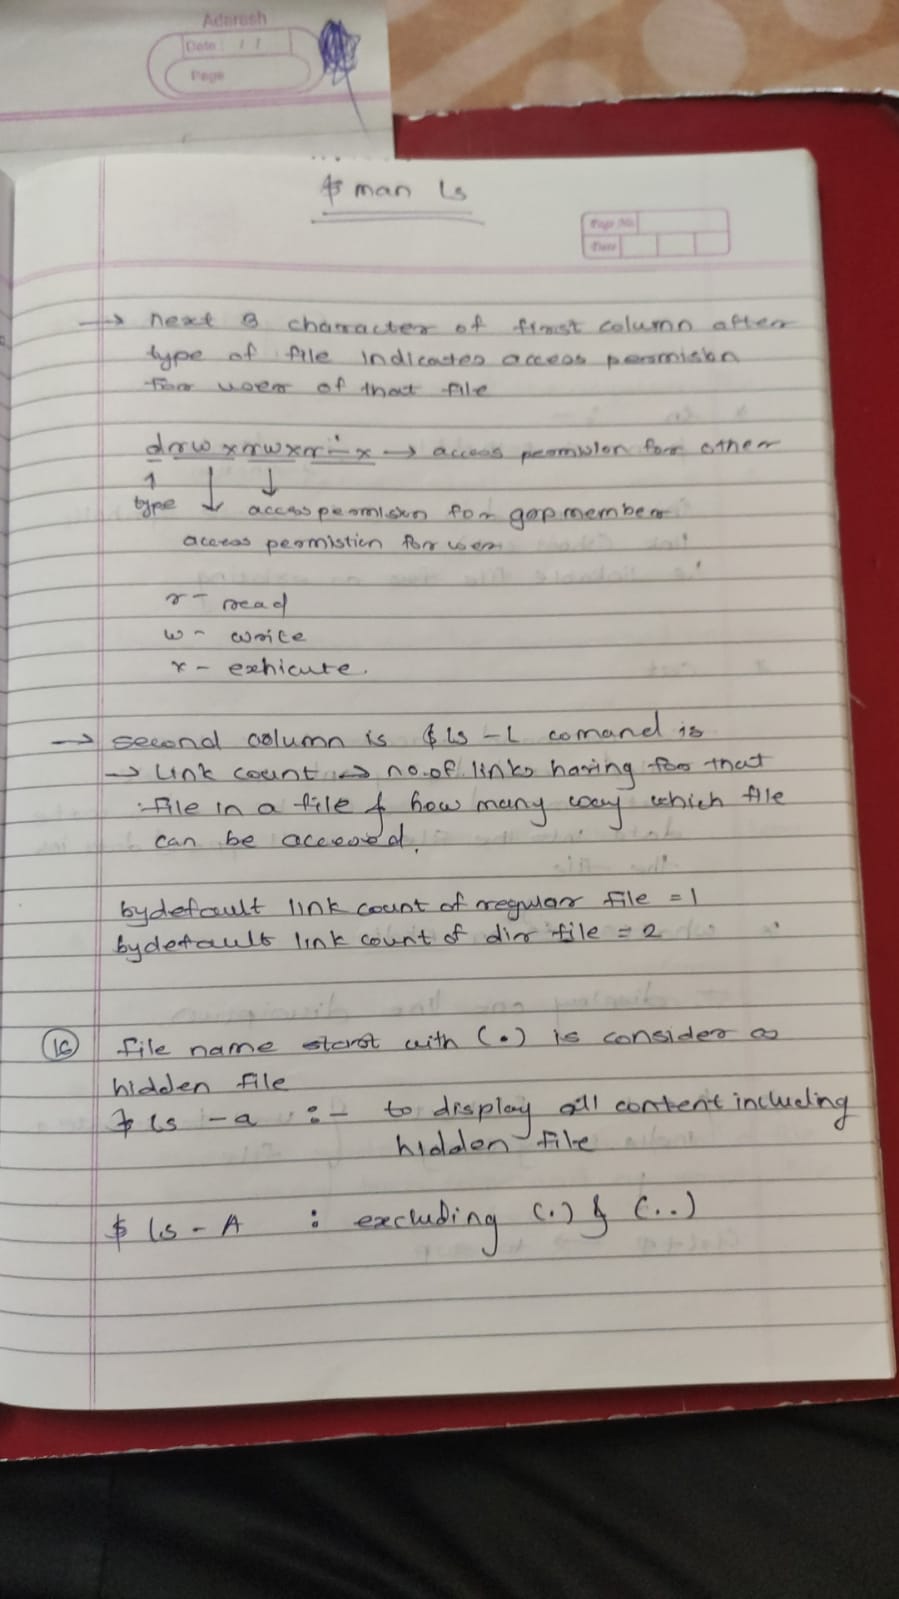 Adarsh
Date : / /
Page
$ man ls
Page No.
Date
→ next 3 character of first column after
type of file indicates access permisibn
for user of that file
drwxrwxr-x → access permision for other
type access permision for grp member
access permistion for user
r - read
w - write
x - exhicute.
→ second column is $ ls -l comand is
→ Link count → no.of links having for that
file in a file & how many way which file
can be accessed.
bydefault link count of regular file = 1
bydefault link count of dir file = 2
16 file name start with (.) is consider as
hidden file
$ ls -a :- to display all content including
hidden file
$ ls - A : excluding (.) & (..)